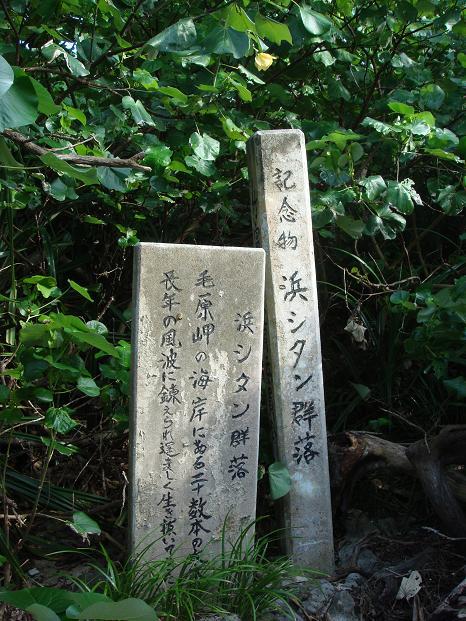 記念物 浜シタン群落
浜シタン群落
毛原岬の海岸にある二十数本の
長年の風波に鍊えられ逞ましく生き抜いて